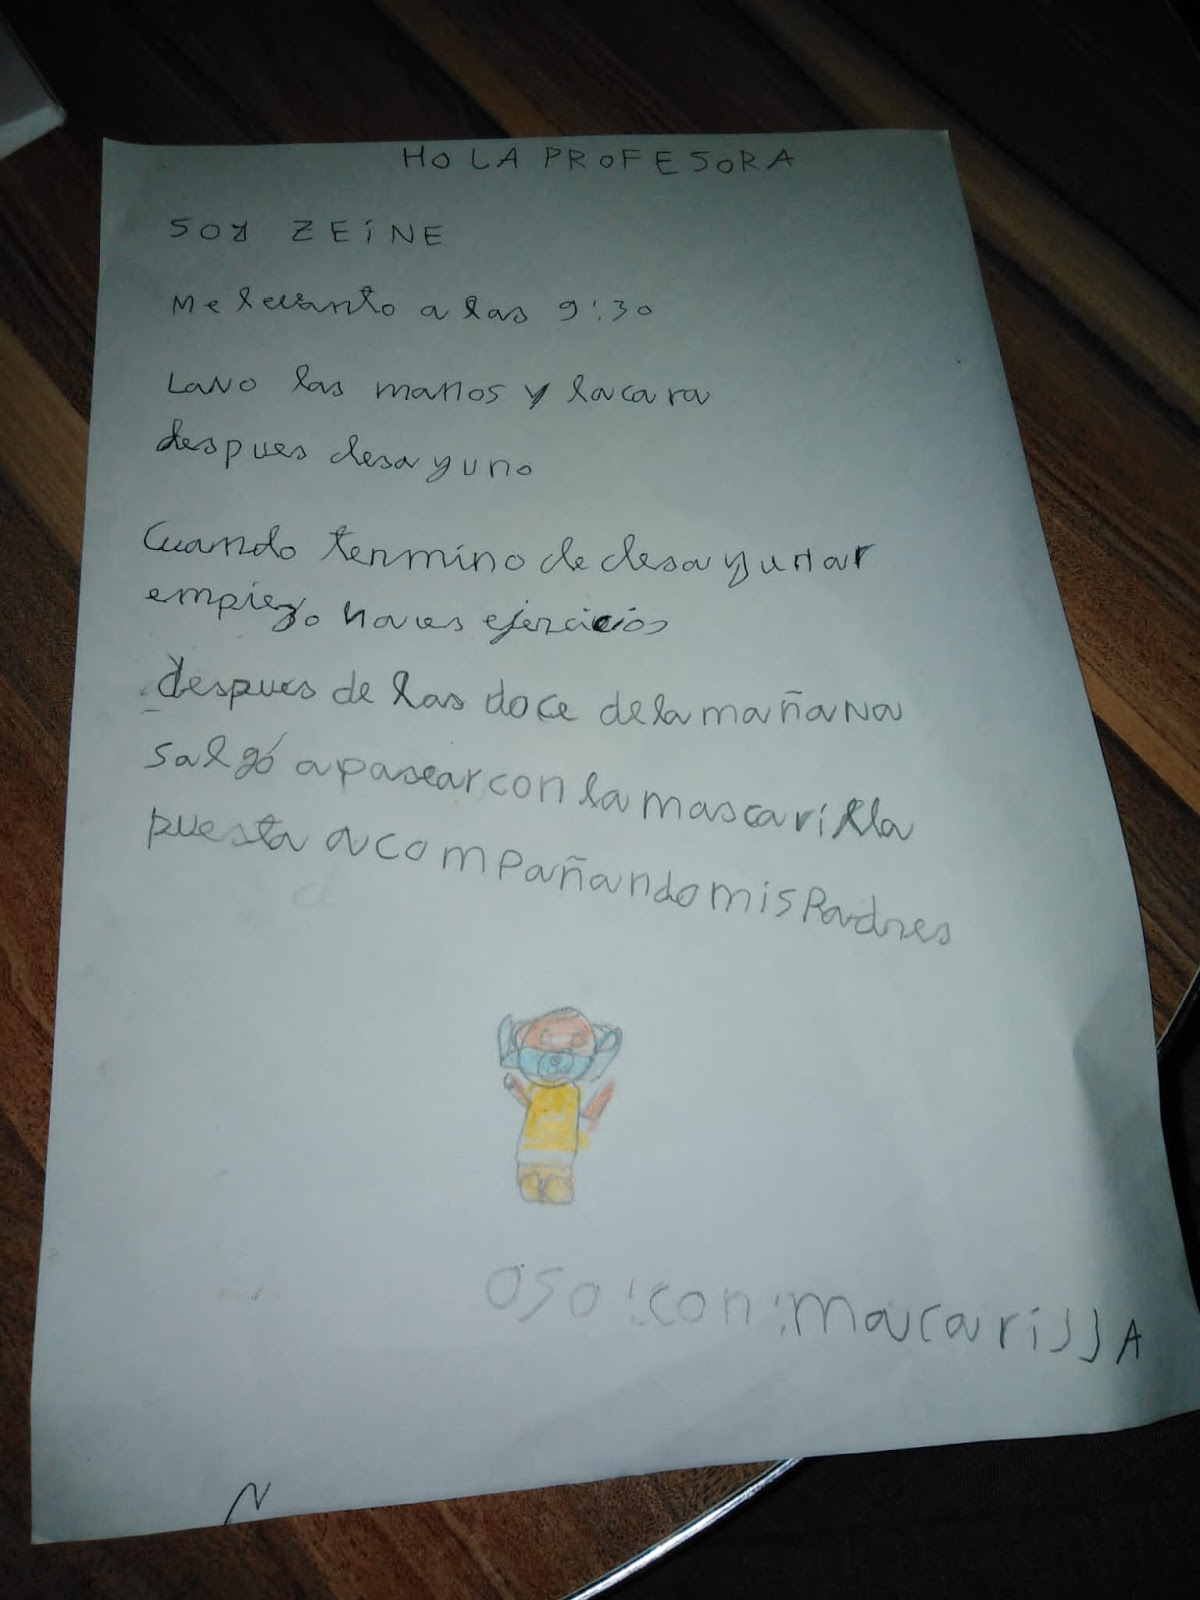 HOLA PROFESORA
SOY ZEINE
Me levanto a las 9:30
Lavo las manos y la cara
despues desayuno
Cuando termino de desayunar
empiezo ejercicios
despues de las doce de la mañana
salgó a pasear con la mascarilla
puesta acompañando mis Padres
oso:con:macarillA
N